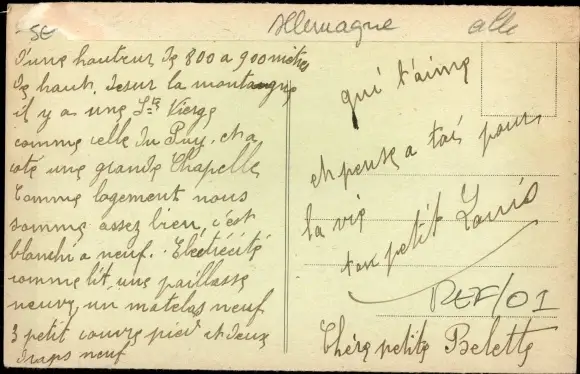 Allemagne
alle
5E
d'une hauteur de 800 a 900 mètres
de haut. desur la montangne
il y a une Ste Vierge
comme celle du Puy. et a
coté une grande Chapelle
Comme logement nous
somme assez bien, c'est
blanchi a neuf. Electricité
comme lit, une paillasse
neuve, un matelas neuf
3 petit couvre pied et deux
draps neuf
qui t'aime
et pense a toi pour
la vie
ton petit Louis
REF/01
Chére petite Belette